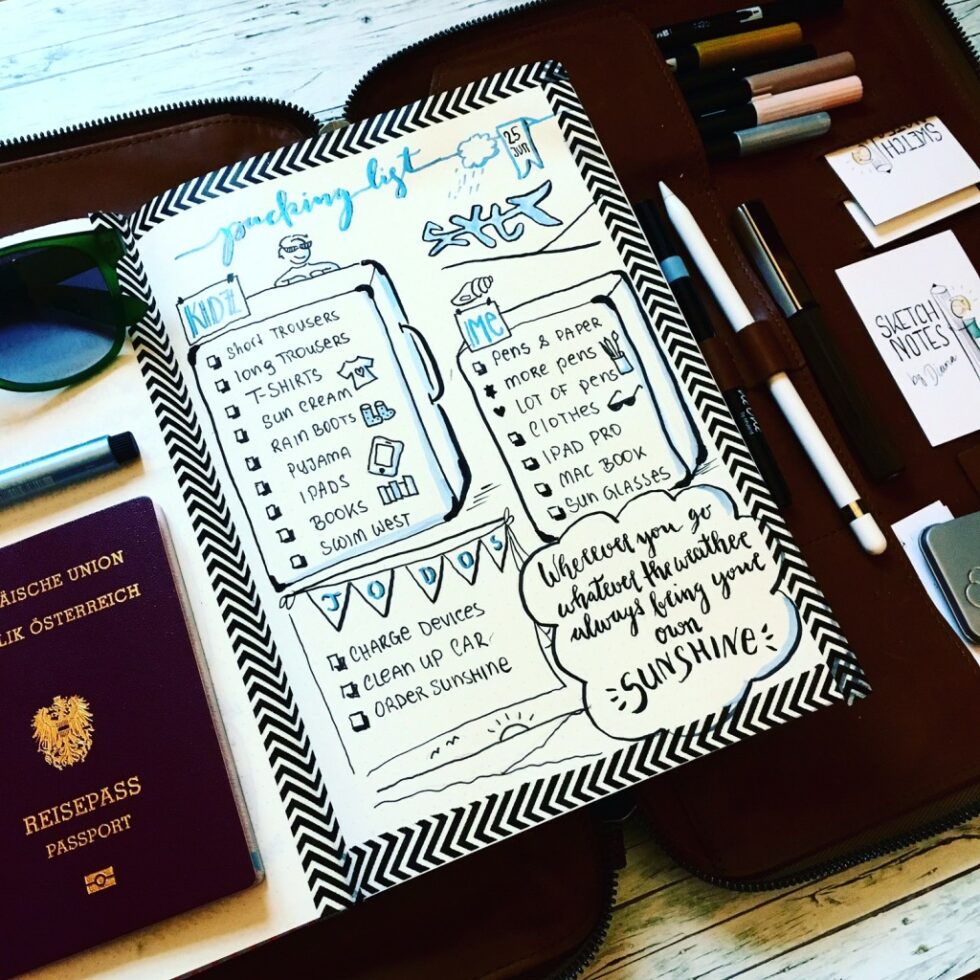 packing list
25
JUN
SYLT
KIDZ
SHORT TROUSERS
LONG TROUSERS
T-SHIRTS
SUN CREAM
RAIN BOOTS
PYJAMA
IPADS
BOOKS
SWIM WEST
ME
PENS & PAPER
MORE PENS
LOT OF PENS
CLOTHES
IPAD PRO
MAC BOOK
SUN GLASSES
TODOS
CHARGE DEVICES
CLEAN UP CAR
ORDER SUNSHINE
Wherever you go
whatever the weather
always bring your
own
SUNSHINE
ÄISCHE UNION
LIK ÖSTERREICH
REISEPASS
PASSPORT
SKETCH
SKETCH
NOTES
by Diana